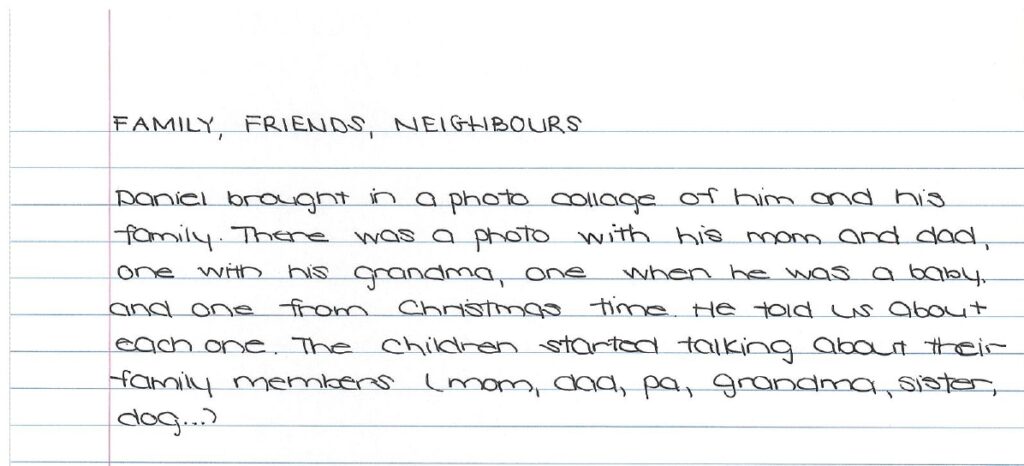 FAMILY, FRIENDS, NEIGHBOURS
Daniel brought in a photo collage of him and his
family. There was a photo with his mom and dad,
one with his grandma, one when he was a baby,
and one from Christmas time. He told us about
each one. The children started talking about their
family members (mom, dad, pa, grandma, sister,
dog...)